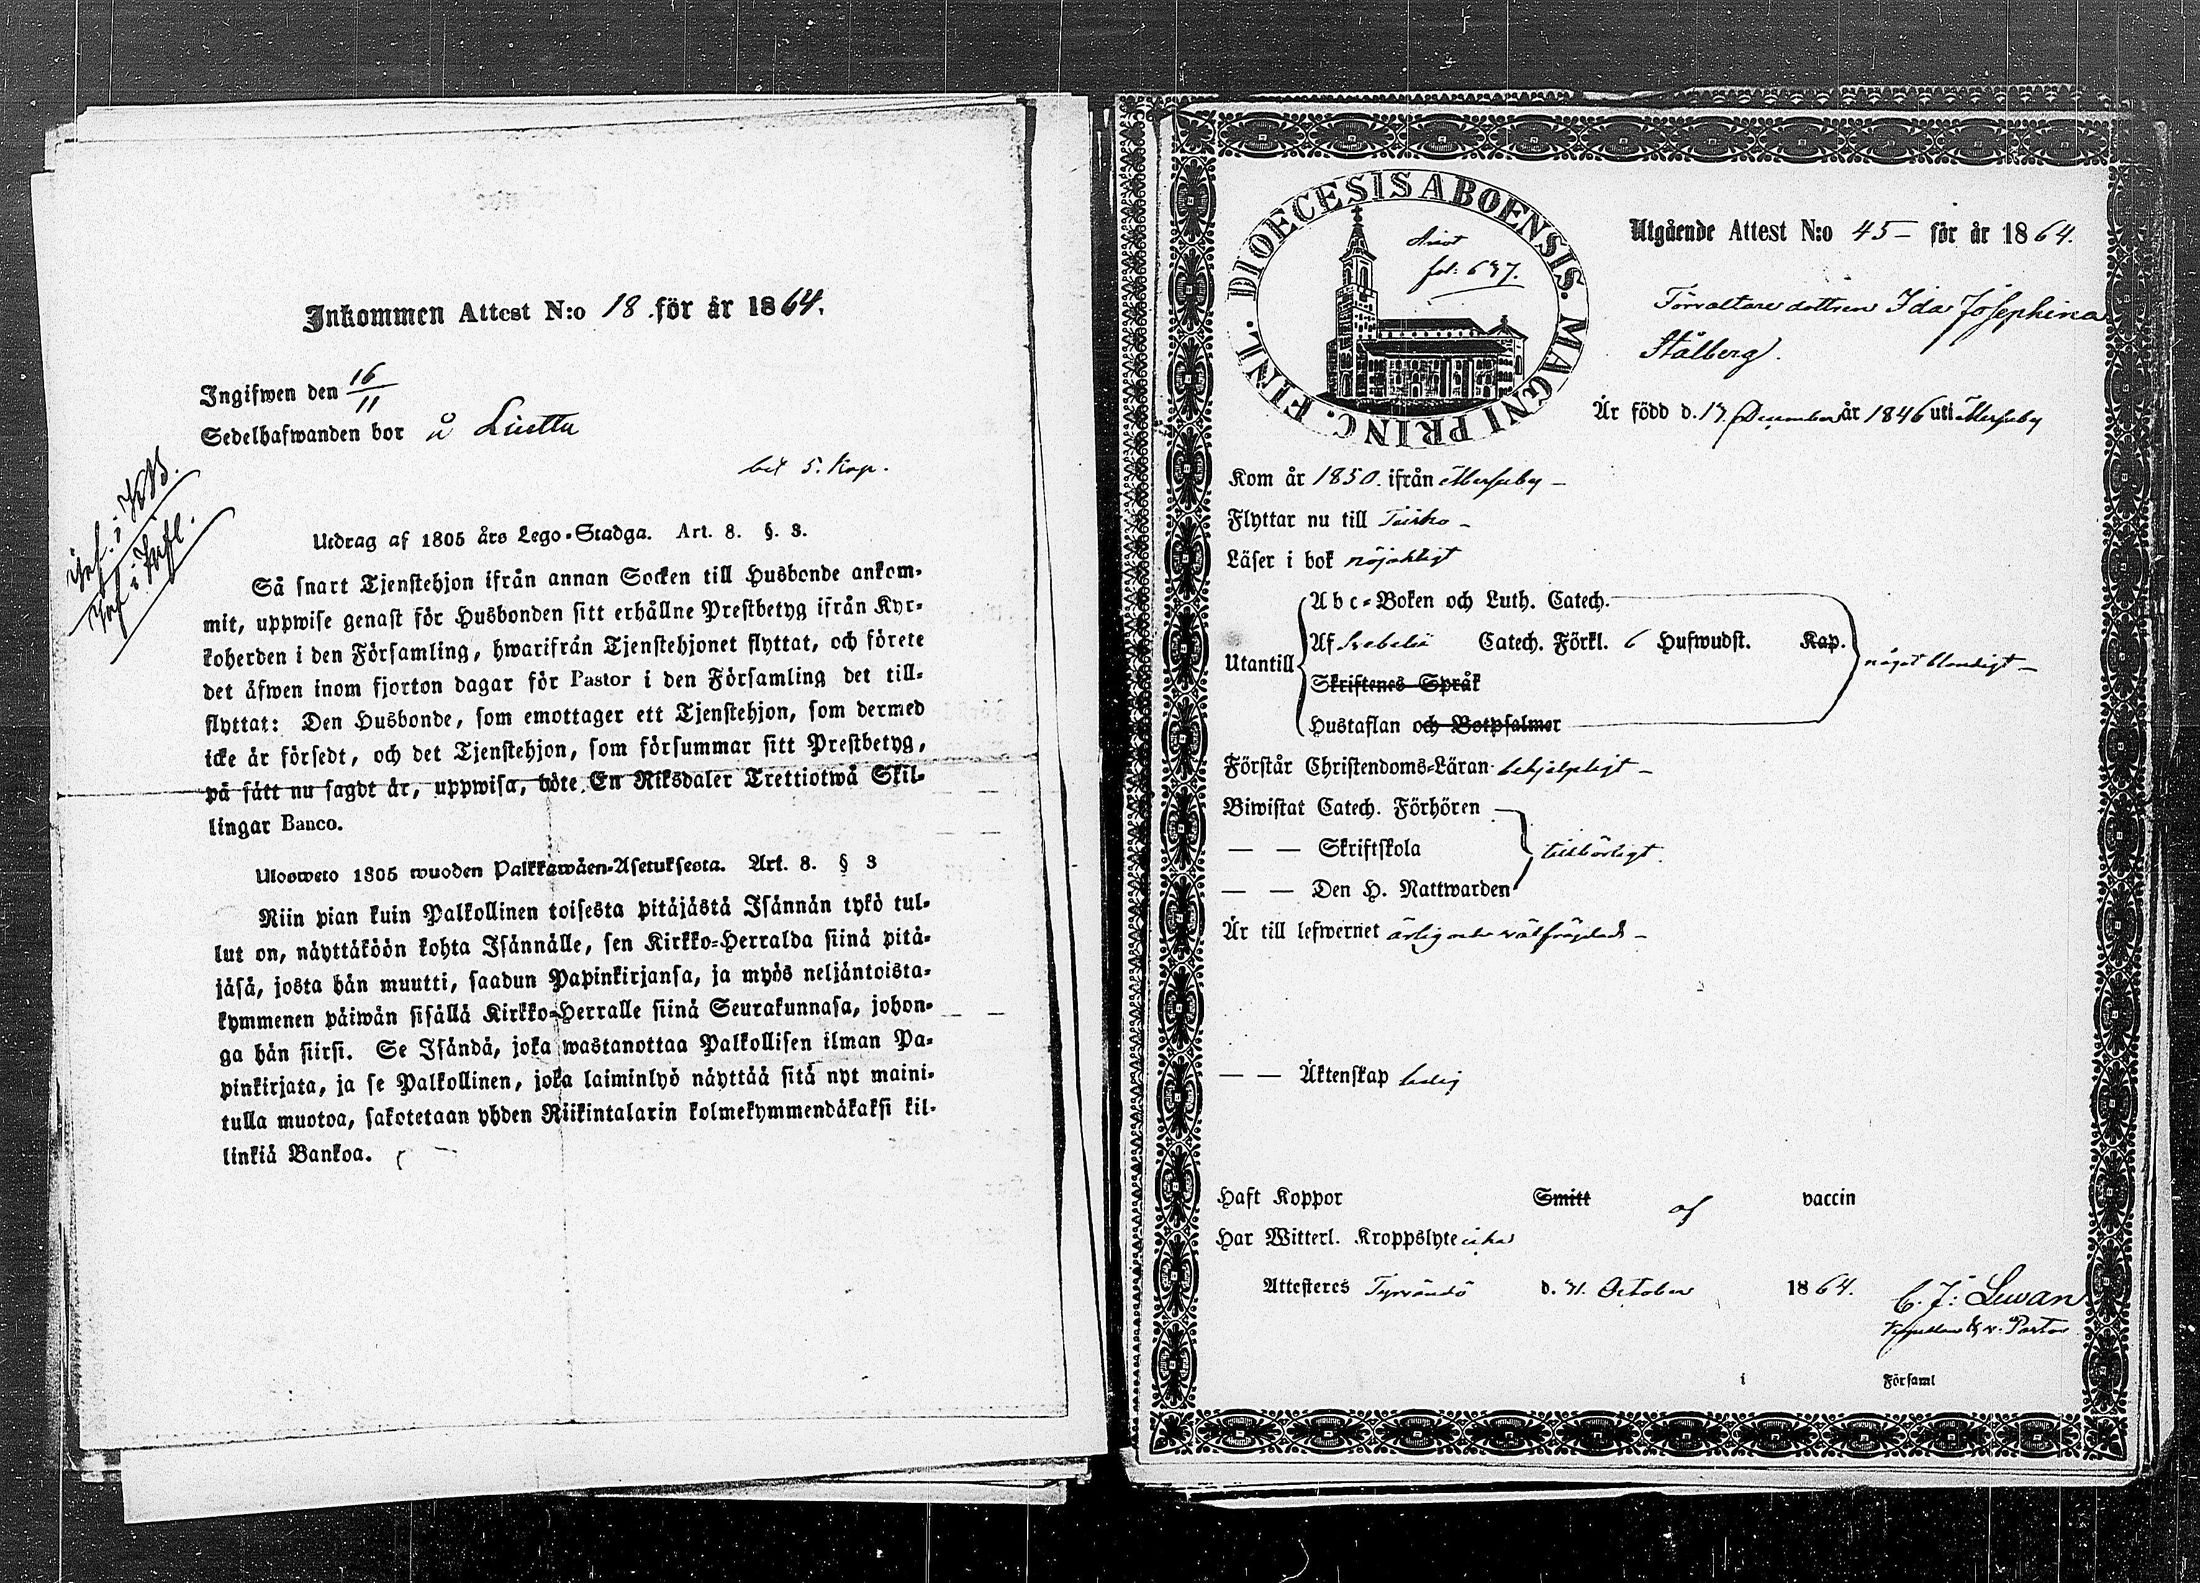 Inkommen Attest N:o 18 för år 1864.
Ingifwen den 16/11
Sedelhafwanden bor å
bet 5. kop.
Utdrag af 1805 års Lego-Stadga. Art. 8. §. 3.
Så snart Tjenstehjon ifrån annan Socken till Husbonde ankom-
mit, uppwise genast för Husbonden sitt erhållne Prestbetyg ifrån Kyr-
koherden i den Församling, hwarifrån Tjenstehjonet flyttat, och förete
det äfwen inom fjorton dagar för Pastor i den Församling det till-
flyttat: Den Husbonde, som emottager ett Tjenstehjon, som dermed
icke är försedt, och det Tjenstehjon, som försummar sitt Prestbetyg,
på sätt nu sagdt är, uppwisa, böte En Riksdaler Trettiotwå Skil-
lingar Banco.
Ulosweto 1805 wuoden Palkkawäen-Asetuksesta. Art. 8. § 3
Niin pian kuin Palkollinen toisesta pitäjästä Isännän tykö tul-
lut on, näyttäköön kohta Isännälle, sen Kirkko-Herralda siinä pitä-
jäsä, josta hän muutti, saadun Papinkirjansa, ja myös neljäntoista-
kymmenen päiwän sisällä Kirkko-Herralle siinä Seurakunnasa, johon-
ga hän siirsi. Se Isändä, joka wastanottaa Palkollisen ilman Pa-
pinkirjata, ja se Palkollinen, joka laiminlyö näyttää sitä nyt maini-
tulla muotoa, sakotetaan yhden Riikintalarin kolmekymmendäkaksi kil-
linkiä Bankoa.
DIOECESIS ABOENSIS. MAGNI PRINC. FINL.
fol: 637.
Utgående Attest N:o 45 – för år 1864.
Förvaltare dottren Ida Josephina
Stålberg.
Är född d. 17 December år 1846 uti
Kom år 1850. ifrån
Flyttar nu till
Läser i bok nöjaktigt
Abc-Boken och Luth. Catech.
Af Svebelii Catech. Förkl. 6 Hufwudst. Kap.
Utantill
något blandigt –
Skriftenes Språk
Hustaflan och Botpsalmer
Förstår Christendoms-Läran behjelpligt –
Biwistat Catech. Förhören
— — Skriftskola
tillbörligt.
— — Den H. Nattwarden
Är till lefwernet ärlig och välfrejdad –
— — Äktenskap ledig
Haft Koppor Smitt af vaccin
Har Witterl. Kroppslyte icke
Attesteres Tyrvändö d. 31. October 1864.
C. J: Lewan
Kapellan & v: Pastor
i Församl